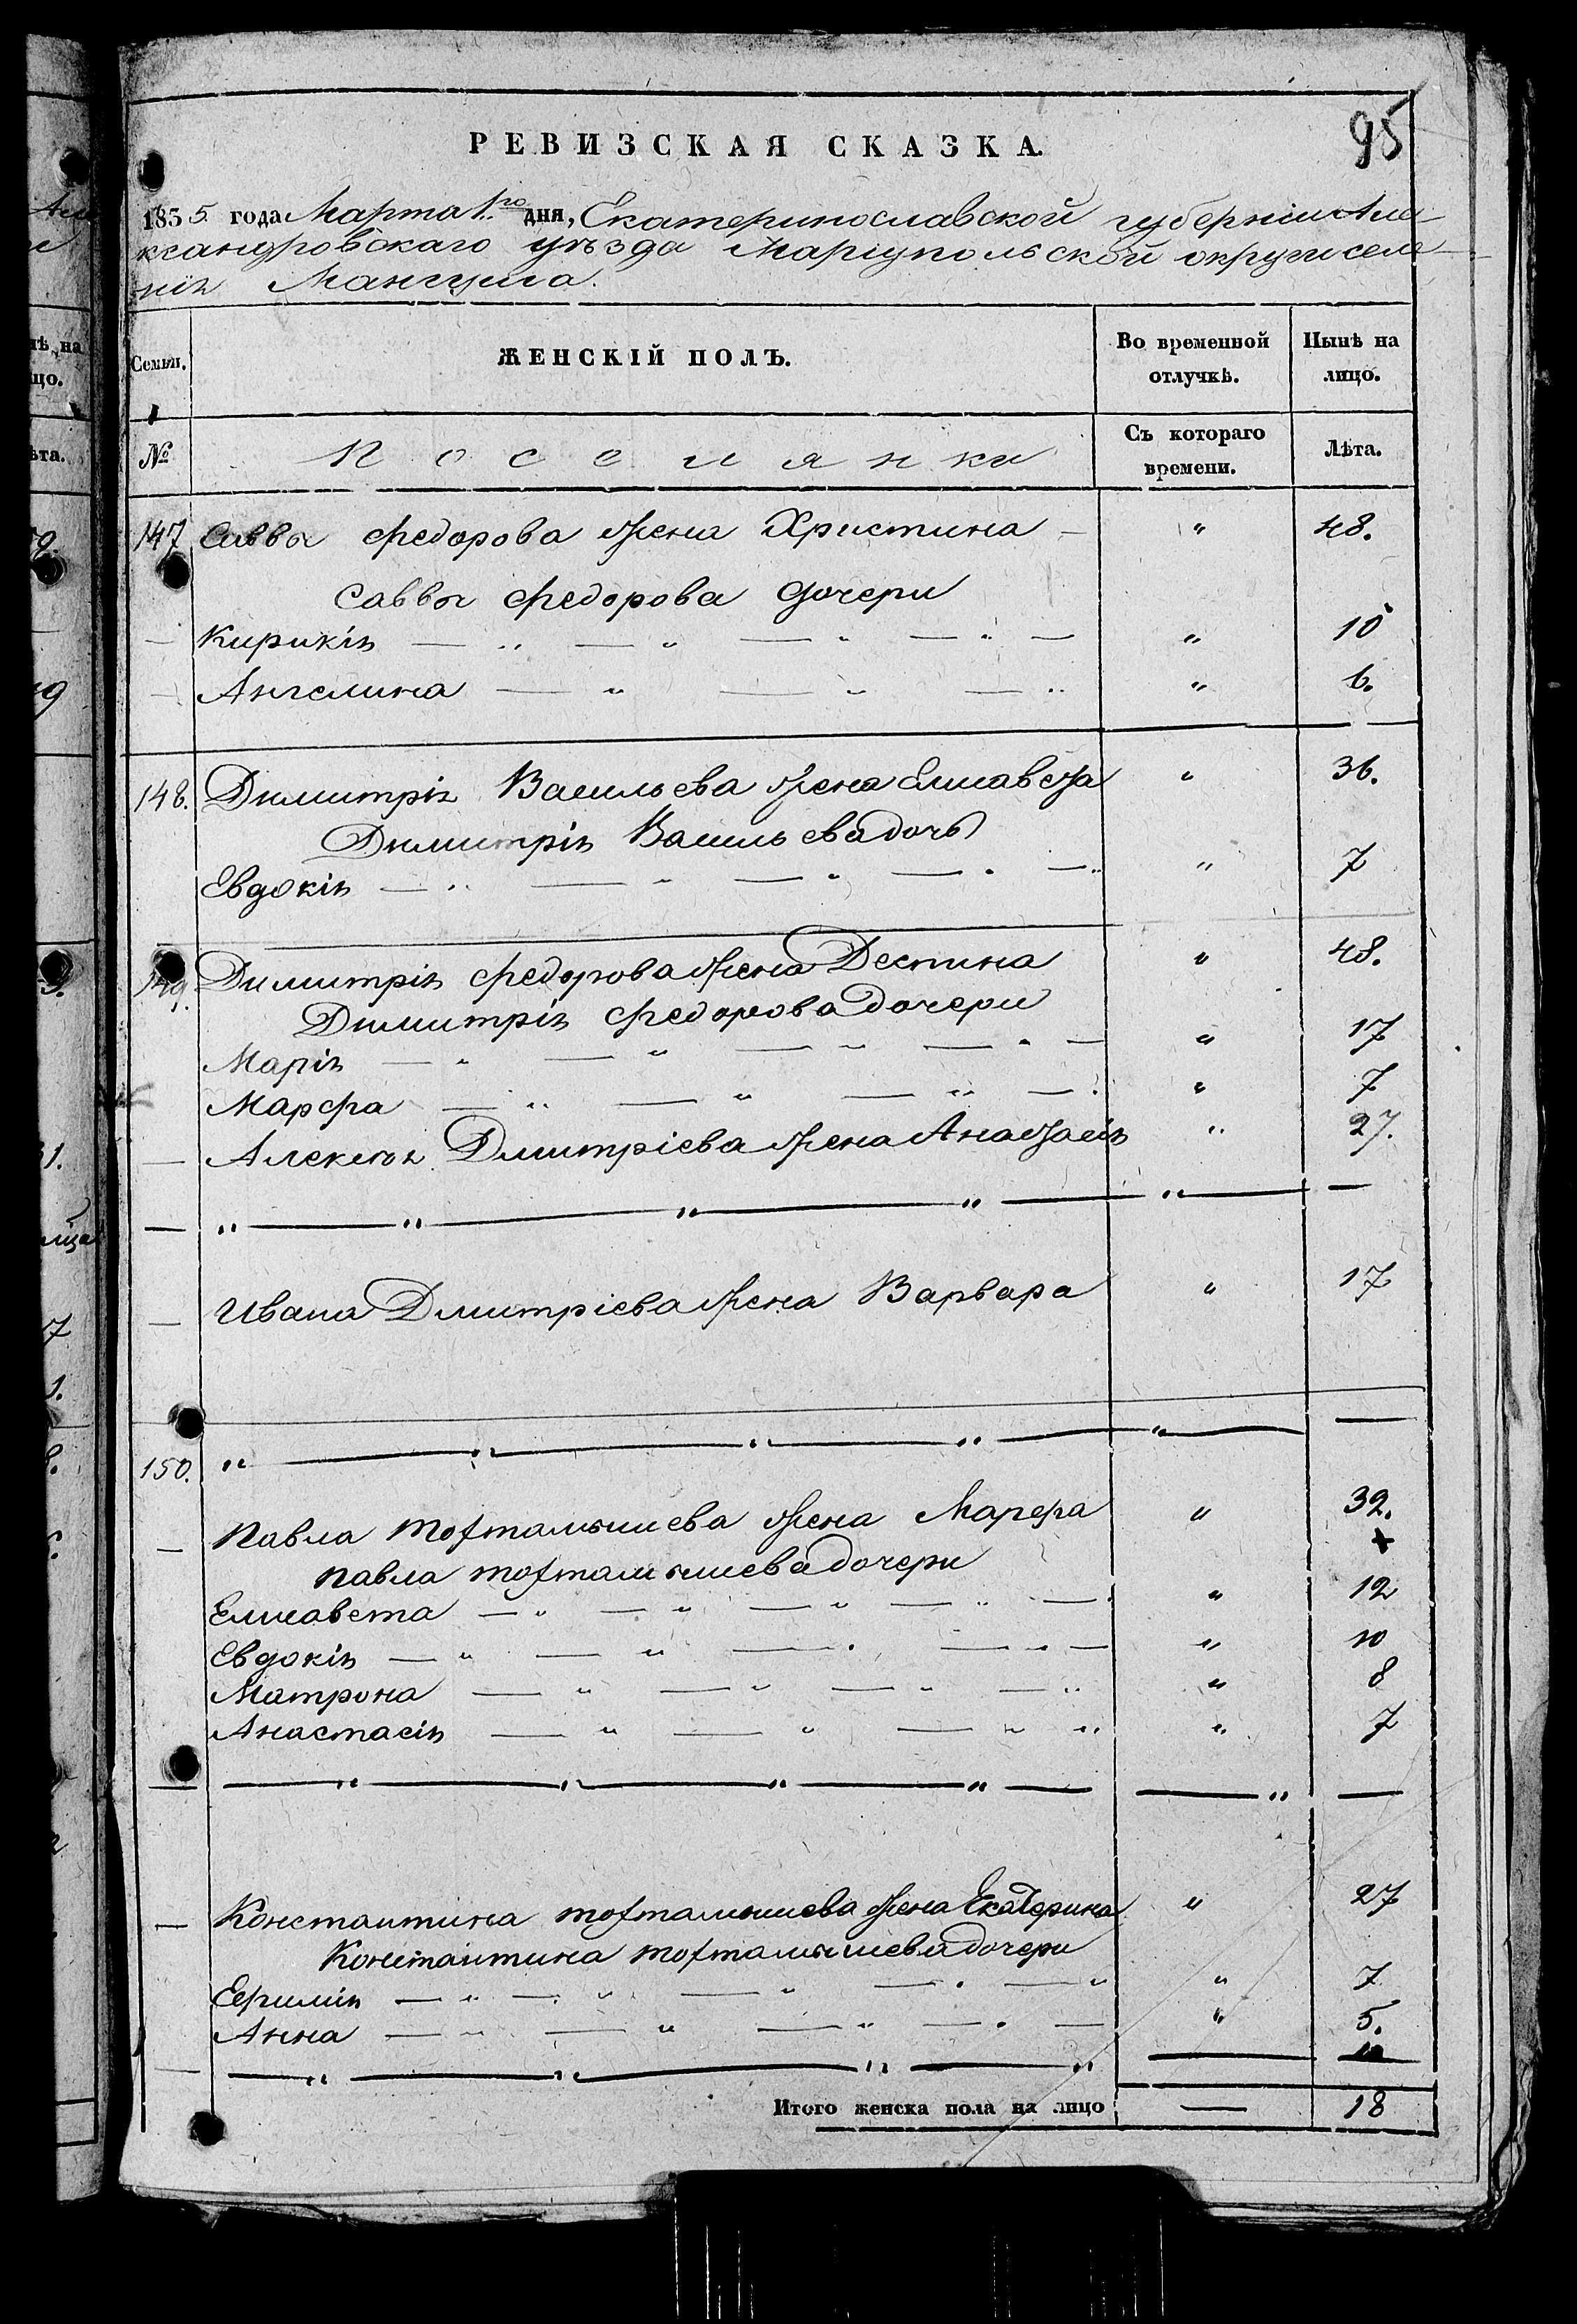 95
РЕВИЗСКАЯ СКАЗКА.
1855 года Марта 1го дня, Екатеринославской губерніи Але-
ксандровскаго уѣзда Маріупольской округи селе-
нія Мангуша.
Семьи. ЖЕНСКІЙ ПОЛЪ. Во временной отлучкѣ. Нынѣ на лицо.
№ Поселянки Съ котораго времени. Лѣта.
147 Саввы Федорова жена Христина — " 48.
Саввы Федорова дочери
— Кирикія — " — " — " — " — " 10
— Ангелина — " — " — " " 6.
148. Димитрія Васильева жена Елисавета " 36.
Димитрія Васильева дочь
Евдокія — " — " — " — " — " " 7
149. Димитрія Федорова жена Деспина " 48.
Димитрія Федорова дочери
Марія — " — " — " — " — " 17
Марфа — " — " — " — " 7
— Алексѣя Дмитріева жена Анастасія " 27.
— " — " — " — " — " — —
— Ивана Дмитріева жена Варвара " 17
150. " — " — " — " — " — —
— Павла Тохтамышева жена Марфа " 32.
Павла Тохтамышева дочери
Елисавета — " — " — " — " — " 12
Евдокія — " — " — " — " — " 10
Матрона — " — " — " — " " 8
Анастасія — " — " — " " " 7
— — " — " — " — " — — " —
— Константина Тохтамышева жена Екатерина " 27
Константина Тохтамышева дочери
Ефимія — " — " — " — " — " " 7
Анна — " — " — " — " — " 5.
— — " — " — " — " — —
Итого женска пола на лицо — 18